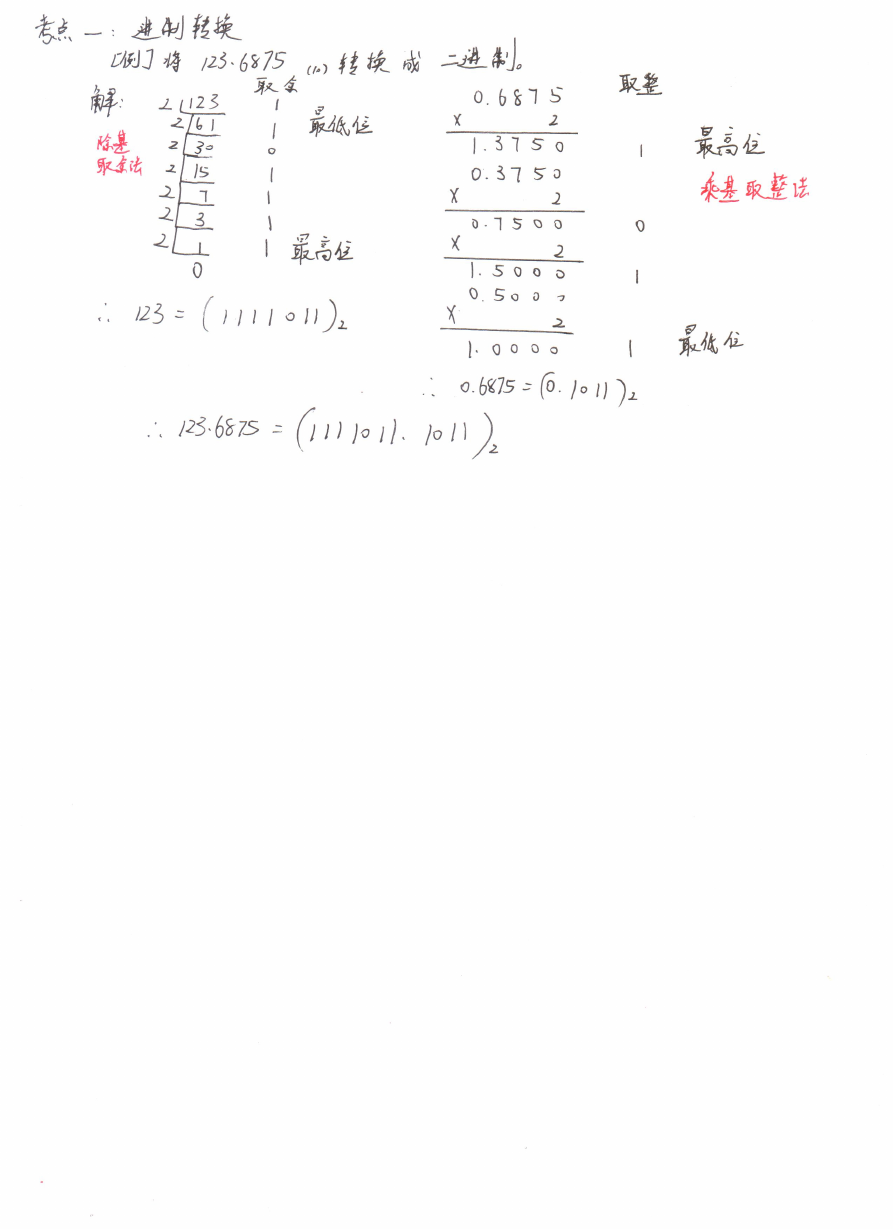 考点一：进制转换
[例] 将 123.6875 (10) 转换成 二进制。
解：
取余
2 123 1
2 61 1 最低位
2 30 0
2 15 1
2 7 1
2 3 1
2 1 1 最高位
0
除基
取余法
∴ 123 = (1111011)2
取整
0.6875
× 2
1.3750 1 最高位
0.3750
× 2
0.7500 0
× 2
1.5000 1
0.5000
× 2
1.0000 1 最低位
乘基取整法
∴ 0.6875 = (0.1011)2
∴ 123.6875 = (1111011.1011)2